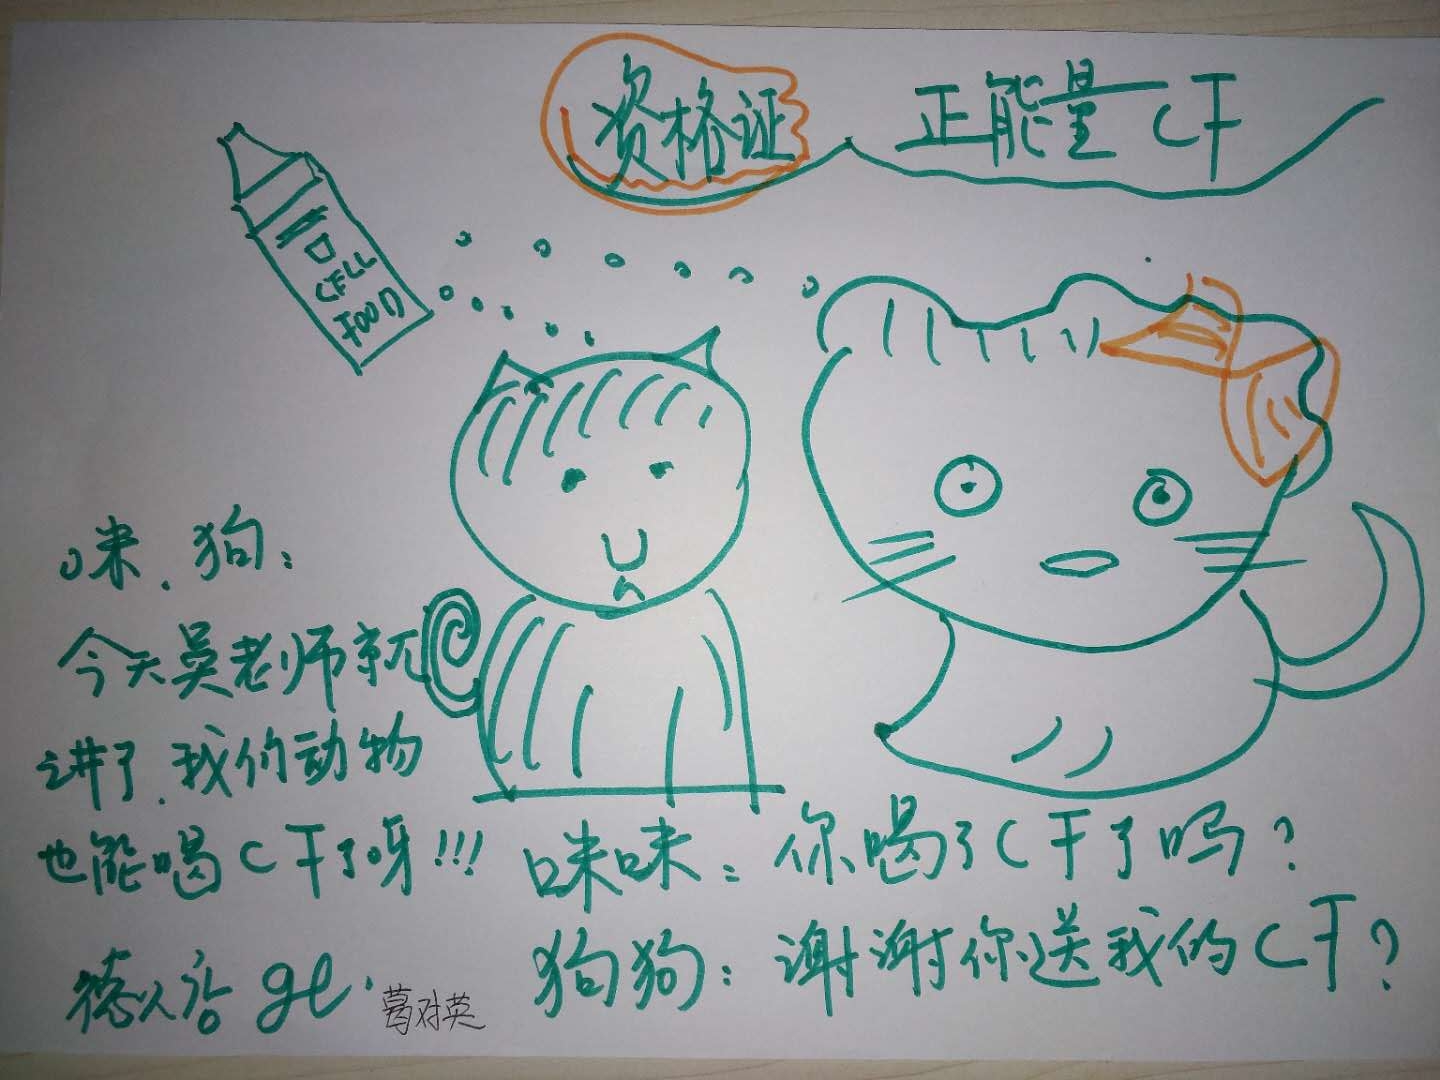 资格证 正能量CF
CELL
FOOD
咪、狗：
今天吴老师就
讲了、我们动物
也能喝CF了呀!!!
咪咪：你喝了CF了吗?
狗狗：谢谢你送我的CF?
葛对英